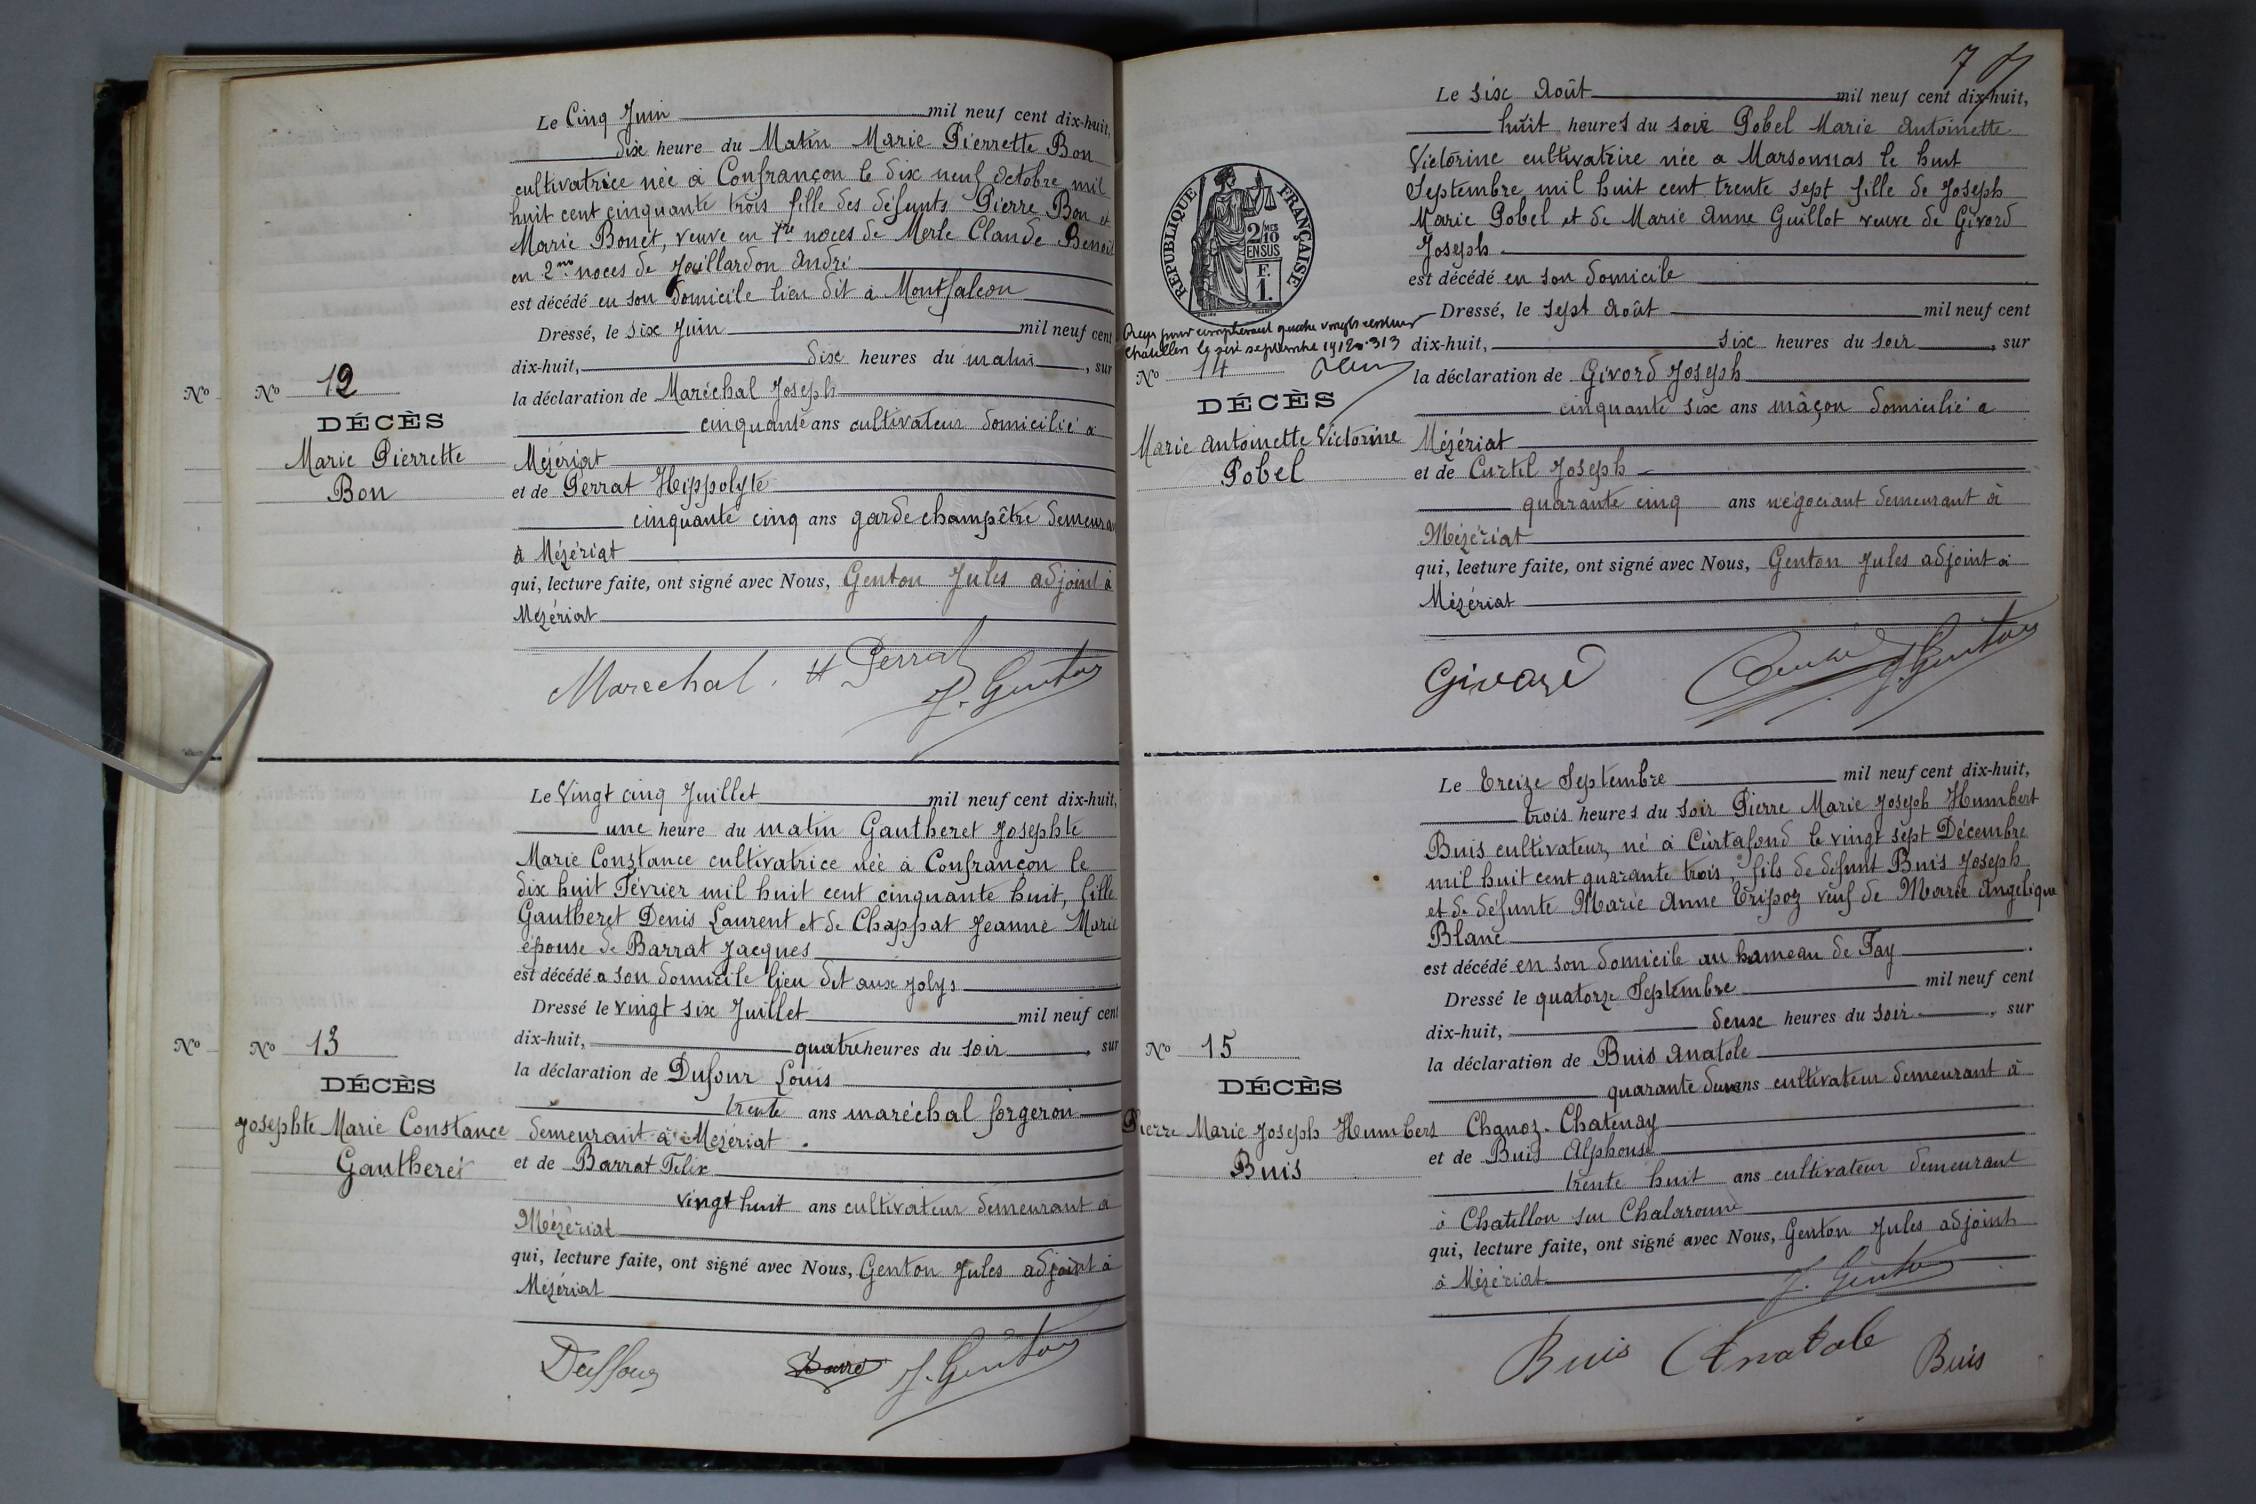 Le Cinq Juin mil neuf cent dix-huit,
dix heure du Matin Marie Pierrette Bon
cultivatrice née à Confrançon le dix neuf octobre mil
huit cent cinquante trois fille des défunts Pierre Bon et
Marie Bonet, veuve en 1re noces de Merle Claude Benoit
en 2me noces de Jouillardon André
est décédé en son domicile lieu dit à Montfalcon
Dressé, le six Juin mil neuf cent
dix-huit, dix heures du matin, sur
No No 12
la déclaration de Maréchal Joseph
DÉCÈS
cinquante ans cultivateur domicilié à
Marie Pierrette
Mézériat
Bon
et de Perrat Hippolyte
cinquante cinq ans garde champêtre demeura
à Mézériat
qui, lecture faite, ont signé avec Nous, Genton Jules adjoint à
Mézériat
Marechal. H Perrat
J. Genton
Le Vingt cinq Juillet mil neuf cent dix-huit,
une heure du matin Gautheret Josephte
Marie Constance cultivatrice née à Confrançon le
dix huit Février mil huit cent cinquante huit, fille
Gautheret Denis Laurent et de Chappat Jeanne Marie
épouse de Barrat Jacques
est décédé a son domicile lieu dit aux Jolys
Dressé le vingt six Juillet mil neuf cent
dix-huit, quatre heures du soir, sur
No No 13
la déclaration de Dufour Louis
DÉCÈS
trente ans maréchal forgeron
Josephte Marie Constance
demeurant à Mézériat.
Gautheret
et de Barrat Félix
vingt huit ans cultivateur demeurant a
Mézériat
qui, lecture faite, ont signé avec Nous, Genton Jules adjoint à
Mézériat
Duffour J. Genton
7
Le six Août mil neuf cent dix-huit,
huit heures du soir Pobel Marie Antoinette
Victorine cultivatrice née a Marsonnas le huit
Septembre mil huit cent trente sept fille de Joseph
Marie Pobel et de Marie Anne Guillot veuve de Givord
Joseph
est décédé en son domicile
RÉPUBLIQUE FRANÇAISE
2/10 MES
EN SUS
F.
1.
Dressé, le sept Août mil neuf cent
dix-huit, six heures du soir, sur
Reçu pour complément quatre vingts centimes
Chatillon le seize septembre 1912 313
No 14
la déclaration de Givord Joseph
DÉCÈS
cinquante six ans mâçon domicilié a
Marie Antoinette Victorine
Mézériat
Pobel
et de Curtil Joseph
quarante cinq ans négociant demeurant à
Mézériat
qui, lecture faite, ont signé avec Nous, Genton Jules adjoint à
Mézériat
Givord J. Genton
Le Treize Septembre mil neuf cent dix-huit,
trois heures du soir Pierre Marie Joseph Humbert
Buis cultivateur, né à Curtafond le vingt sept Décembre
mil huit cent quarante trois, fils de défunt Buis Joseph
et de défunte Marie Anne Tripoz veuf de Marie Angelique
Blanc
est décédé en son domicile au hameau de Fay.
Dressé le quatorze Septembre mil neuf cent
dix-huit, deux heures du soir, sur
No 15
la déclaration de Buis Anatole
DÉCÈS
quarante deux ans cultivateur demeurant à
Pierre Marie Joseph Humbert
Chanoz-Chatenay
Buis
et de Buis Alphonse
trente huit ans cultivateur demeurant
à Chatillon sur Chalaronne
qui, lecture faite, ont signé avec Nous, Genton Jules adjoint
à Mézériat
J. Genton
Buis Anatole Buis